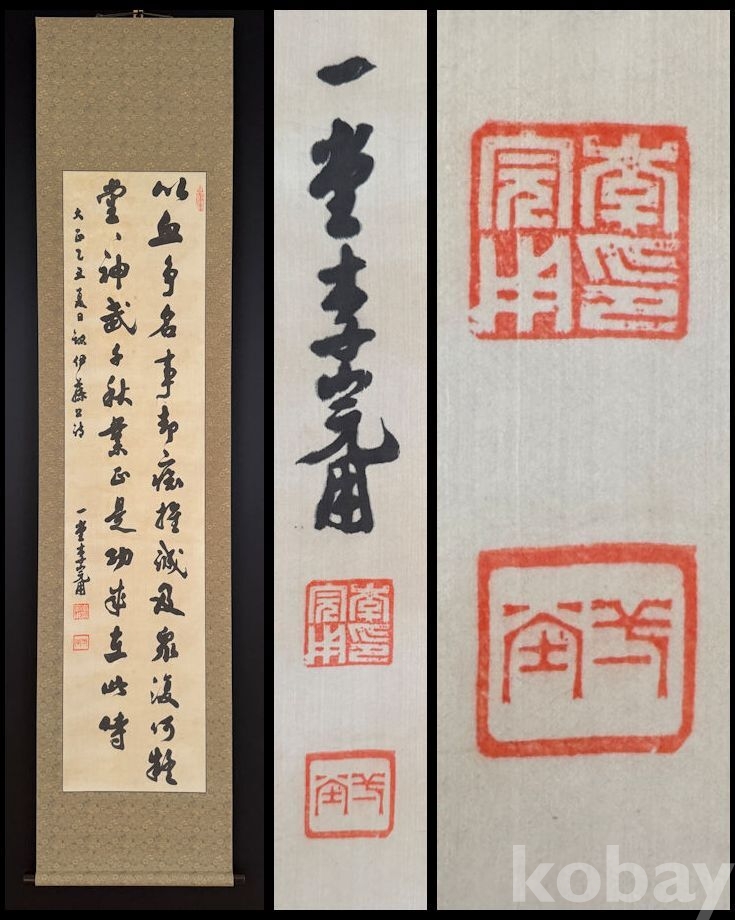 以血争名事却痴推誠及衆復何疑
堂〻神武千秋業正是功成在此時
大正乙丑夏日録伊藤公詩
一堂李完用
李完用印
一堂李完用
李完用印
李完用印
kobay